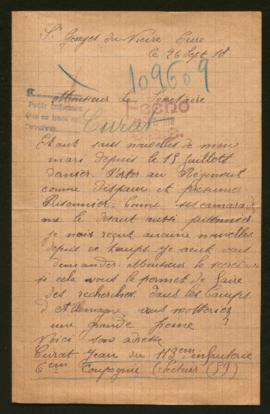 St Georges du Vievre Eure
le 26 Sept 18
109609
Monsieur le Secrétaire
Curat
Etant sans nouvelles de mon
mari depuis le 15 juillet
dernier. Porter au Régiment
comme disparu et présumé
Prisonnier. Comme ses camarades
me le disent aussi prisonnier
je n'ais reçut aucune nouvelles
depuis ce temps je viens vous
demander Monsieur le
si cela vous le permet de faire
des recherches dans les camps
d'Allemagne vous
une grande
Voici son adresse
Curat Jean du 113em infanterie
6em Compagnie Secteur (89)